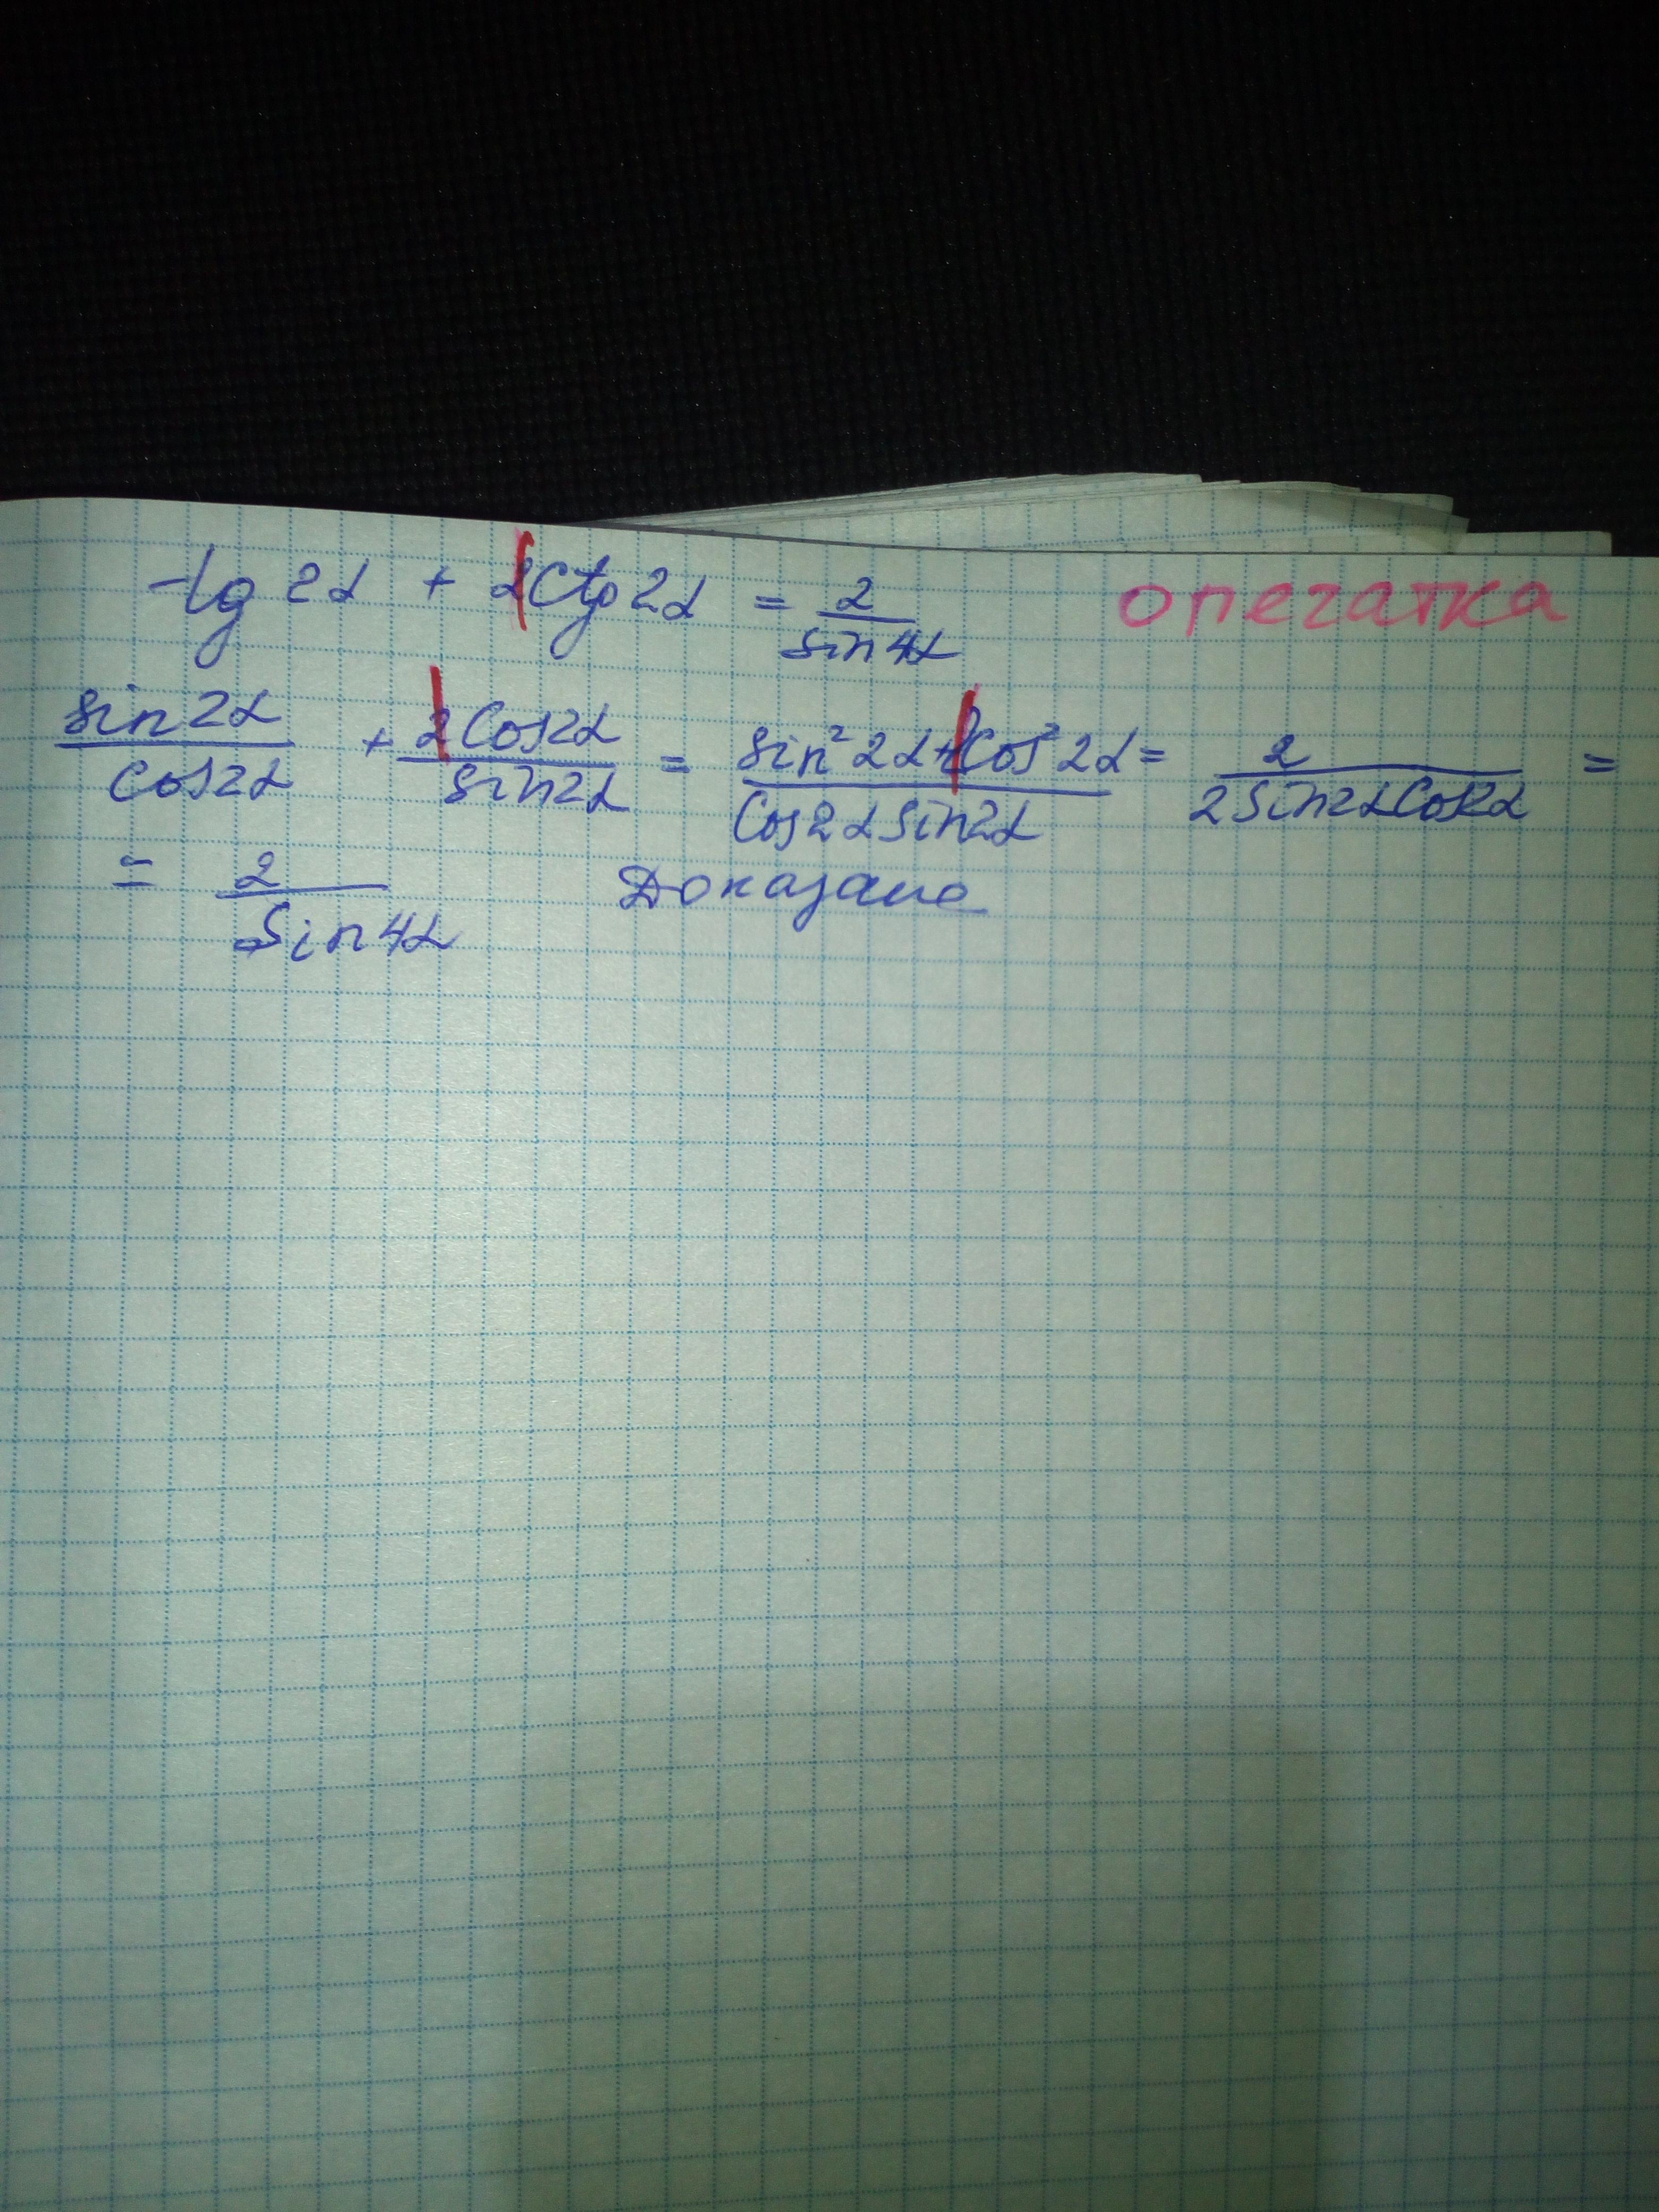 tg 2α + 2Ctg 2α = 2/sin 4α опечатка
sin 2α/cos 2α + 2 Cos 2α/sin 2α = sin² 2α + 2Cos² 2α/Cos 2α sin 2α = 2/2 Sin 2α Cos 2α =
= 2/Sin 4α Доказано